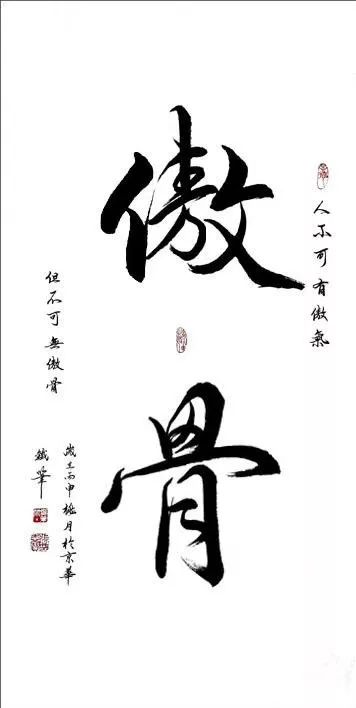 人不可有傲氣
傲骨
但不可無傲骨
歲在丙申桃月於京華
鐵筆